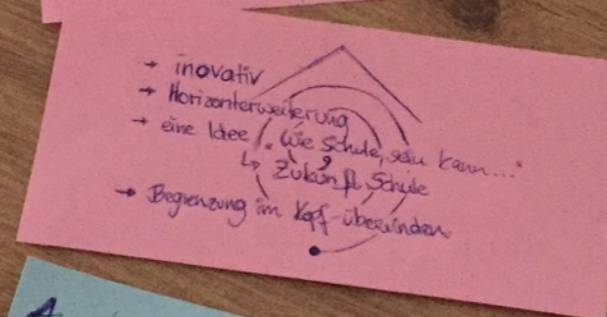 → inovativ
→ Horizonterweiterung
→ eine Idee, "Wie Schule, sein kann..."
↳ Zukunft Schule
→ Begrenzung im Kopf überwinden